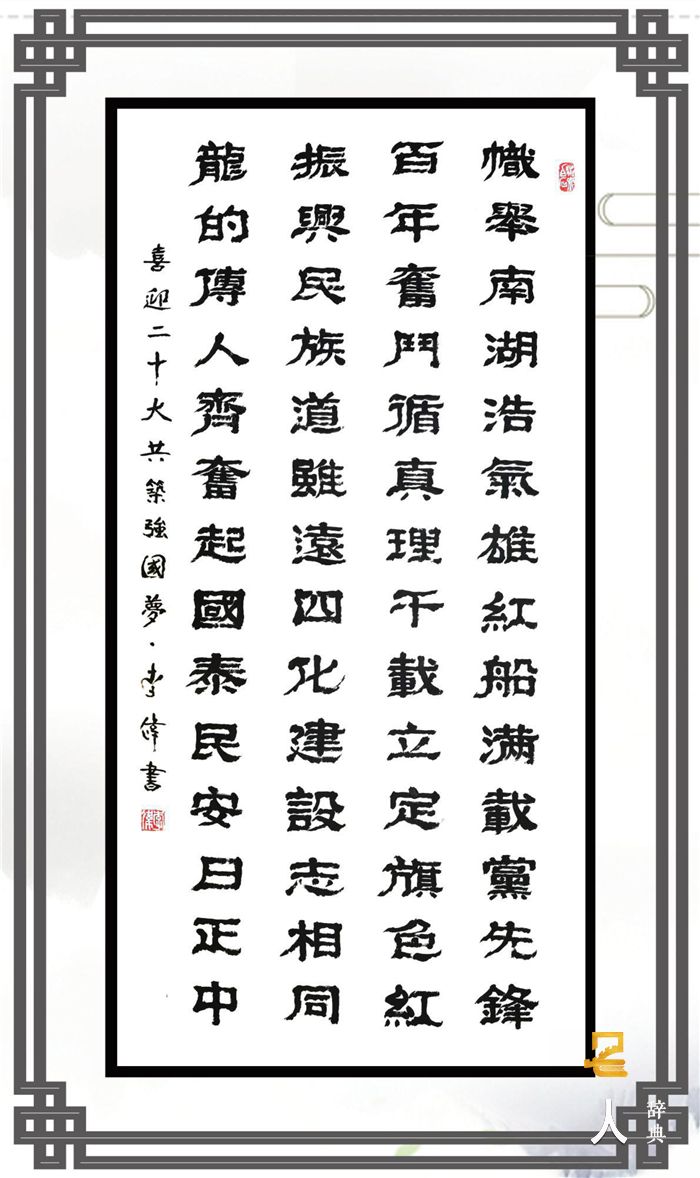 幟舉南湖浩氣雄紅船滿載黨先鋒
百年奮鬥循真理千載立定旗色紅
振興民族道雖遠四化建設志相同
龍的傳人齊奮起國泰民安日正中
喜迎二十大共築強國夢·李偉書
名人
辞典